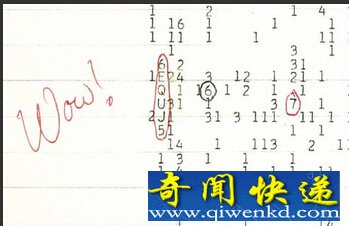 1 2 1 4
1 16 1 1 1
1 11 1 11 11
1 3
6 2 31
Wow! E 24 3 12 1 21
Q 1 16 1 2 1 1
U 31 1 3 7
2 J 31 3 111 11
5 1 1 1
14 1 113
1 3 1 1
1 4
奇闻快递
www.qiwenkd.com